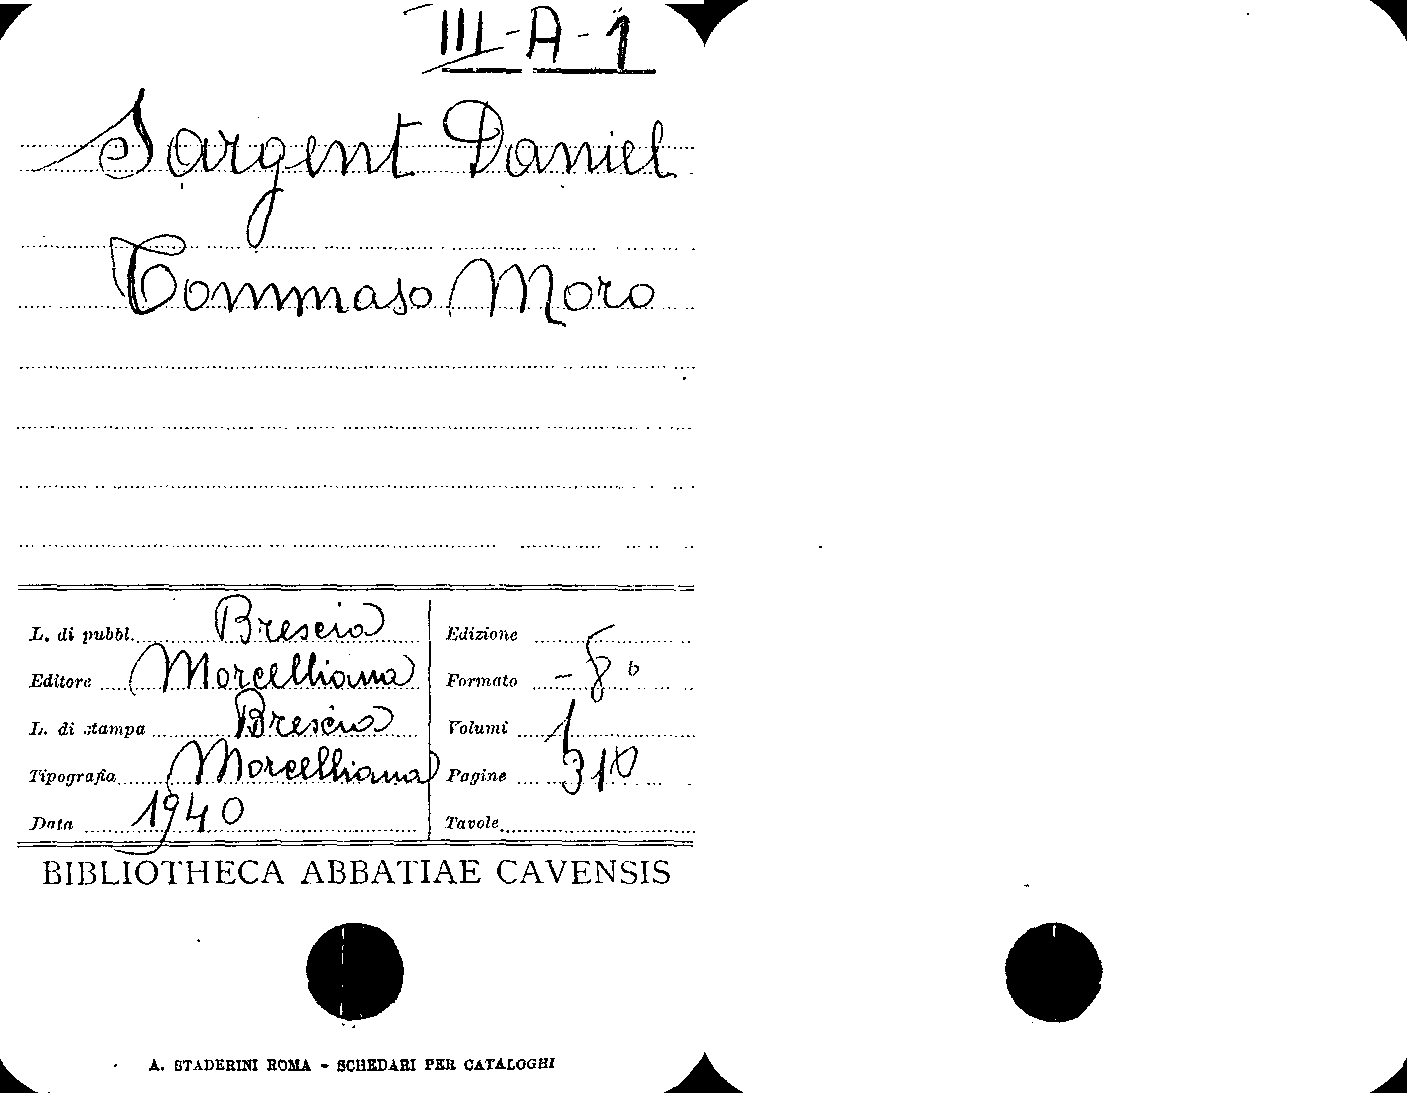 III-A-1
Sargent Daniel
Tommaso Moro
L. di pubbl. Brescia
Editore Morcelliana
L. di stampa Brescia
Tipografia Morcelliana
Data 1940
Edizione
Formato -8°
Volumi 1
Pagine 310
Tavole
BIBLIOTHECA ABBATIAE CAVENSIS
A. STADERINI ROMA - SCHEDARI PER CATALOGHI